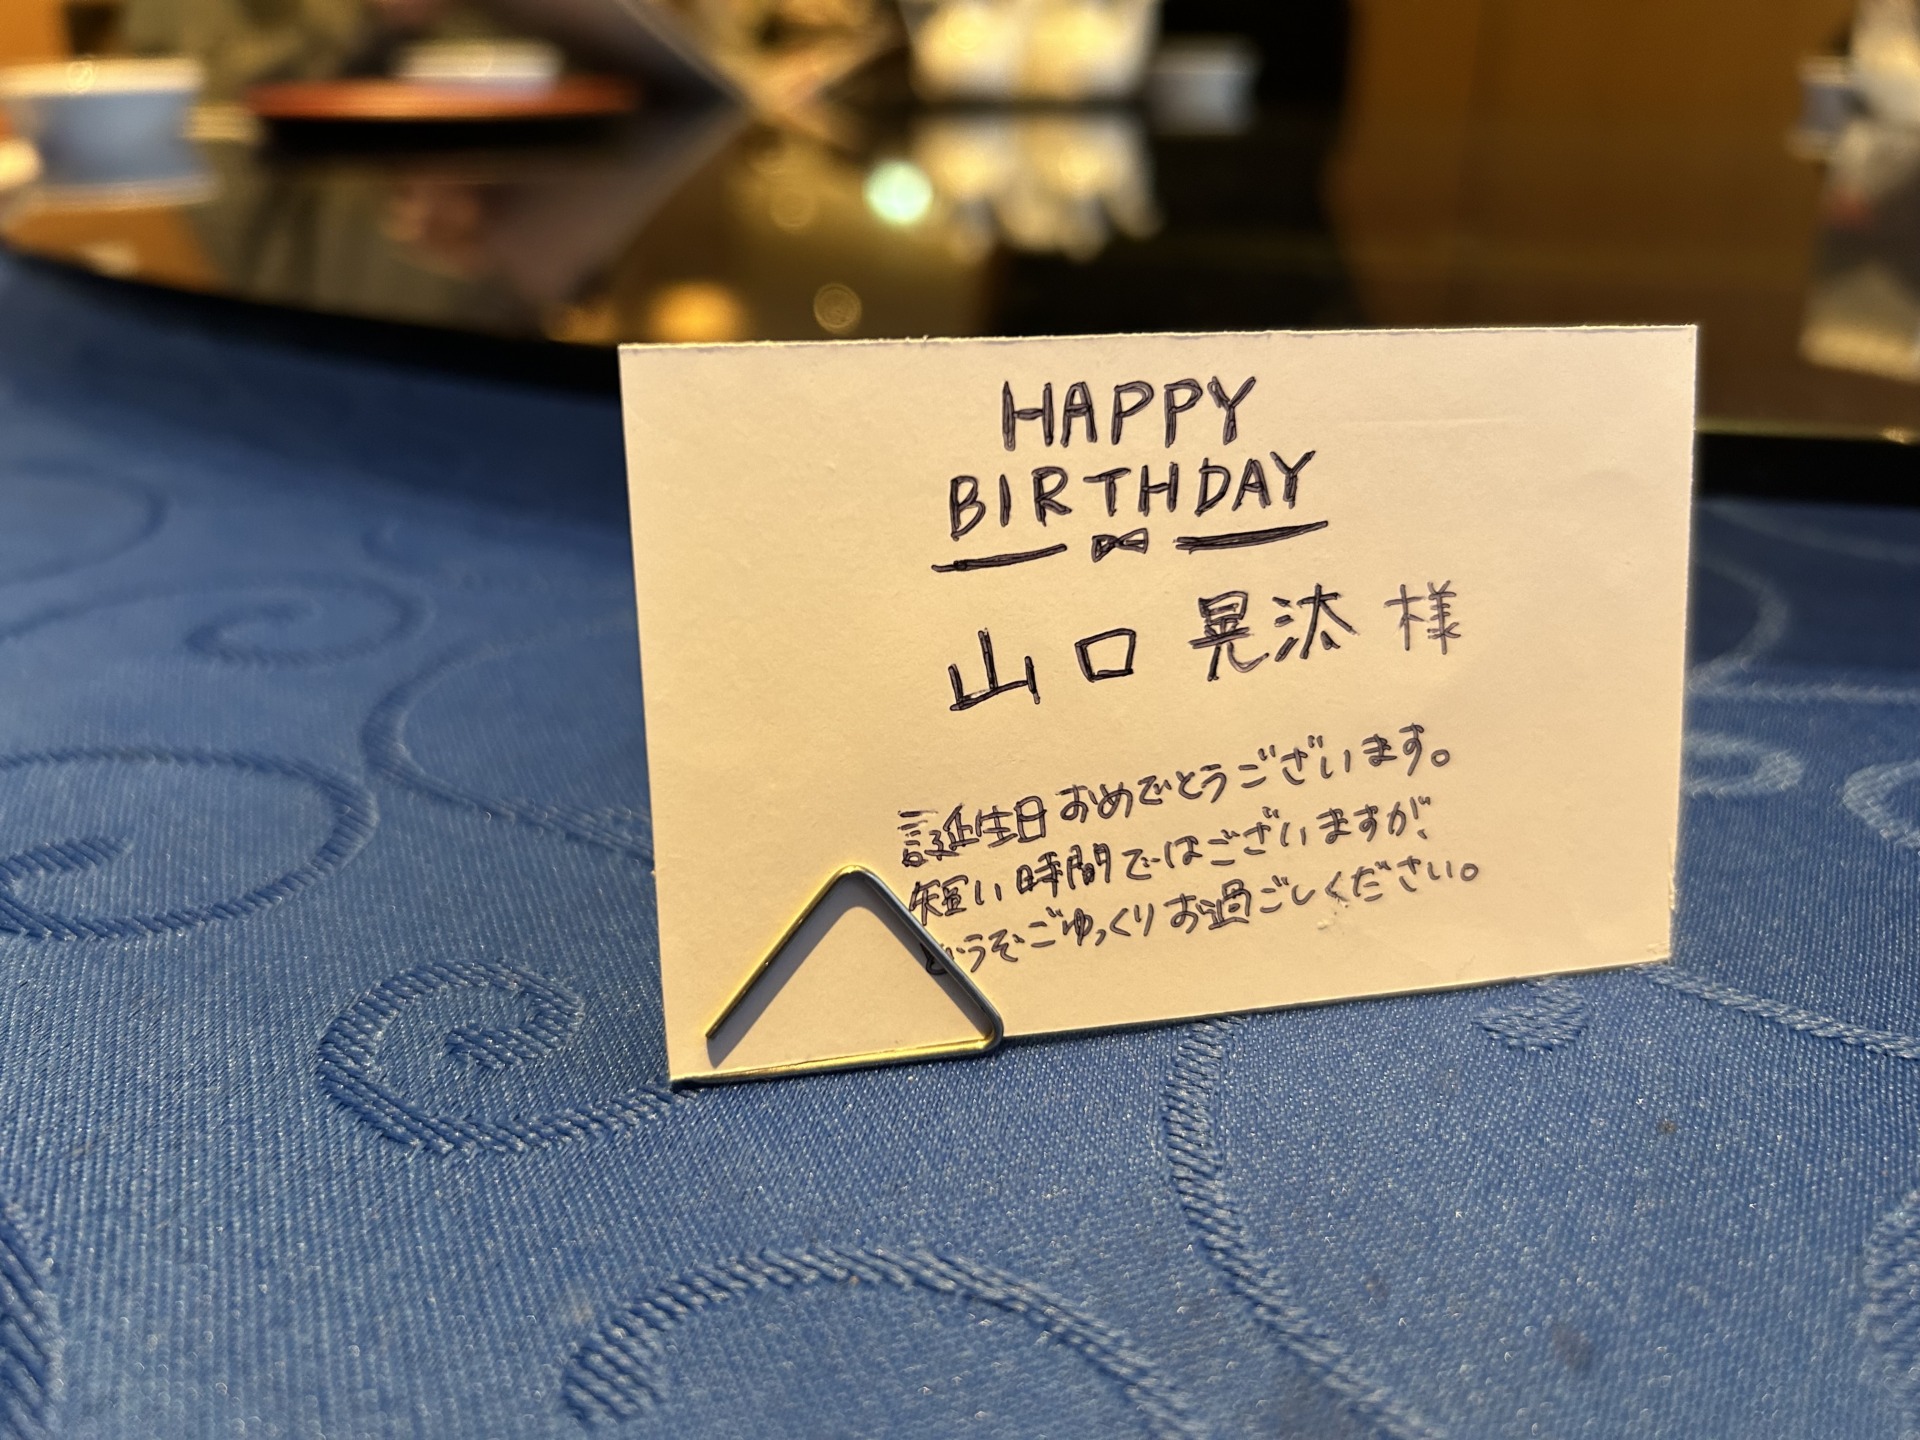 HAPPY
BIRTHDAY
山口 晃汰 様
誕生日おめでとうございます。
短い時間ではございますが、
どうぞごゆっくりお過ごしください。